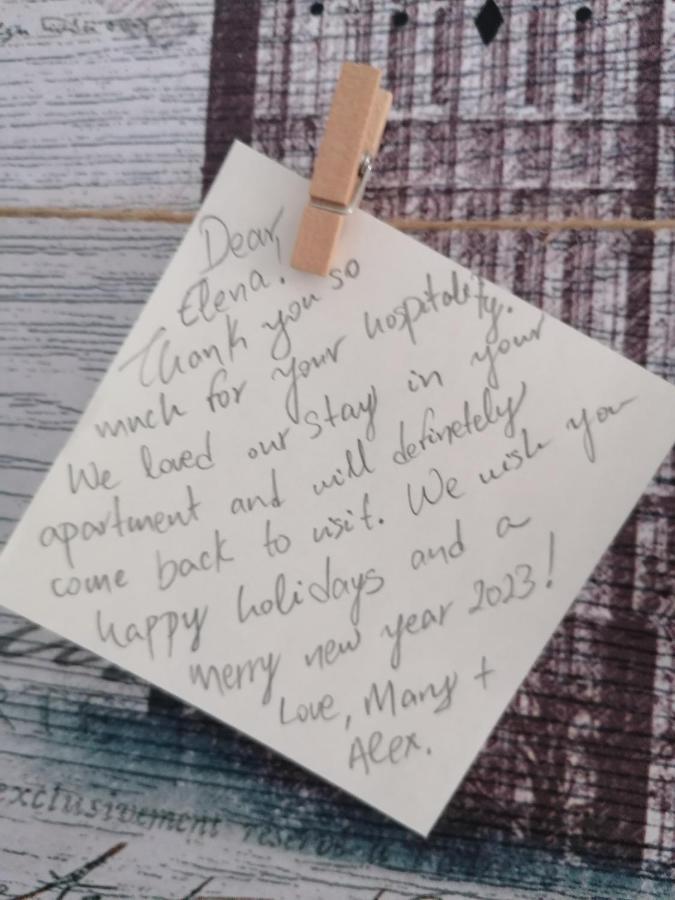 Dear,
Elena!
Thank you so
much for your hospitality.
We loved our stay in your
apartment and will definetely
come back to visit. We wish you
happy holidays and a
merry new year 2023!
Love, Mary +
Alex.
exclusivement reserve a